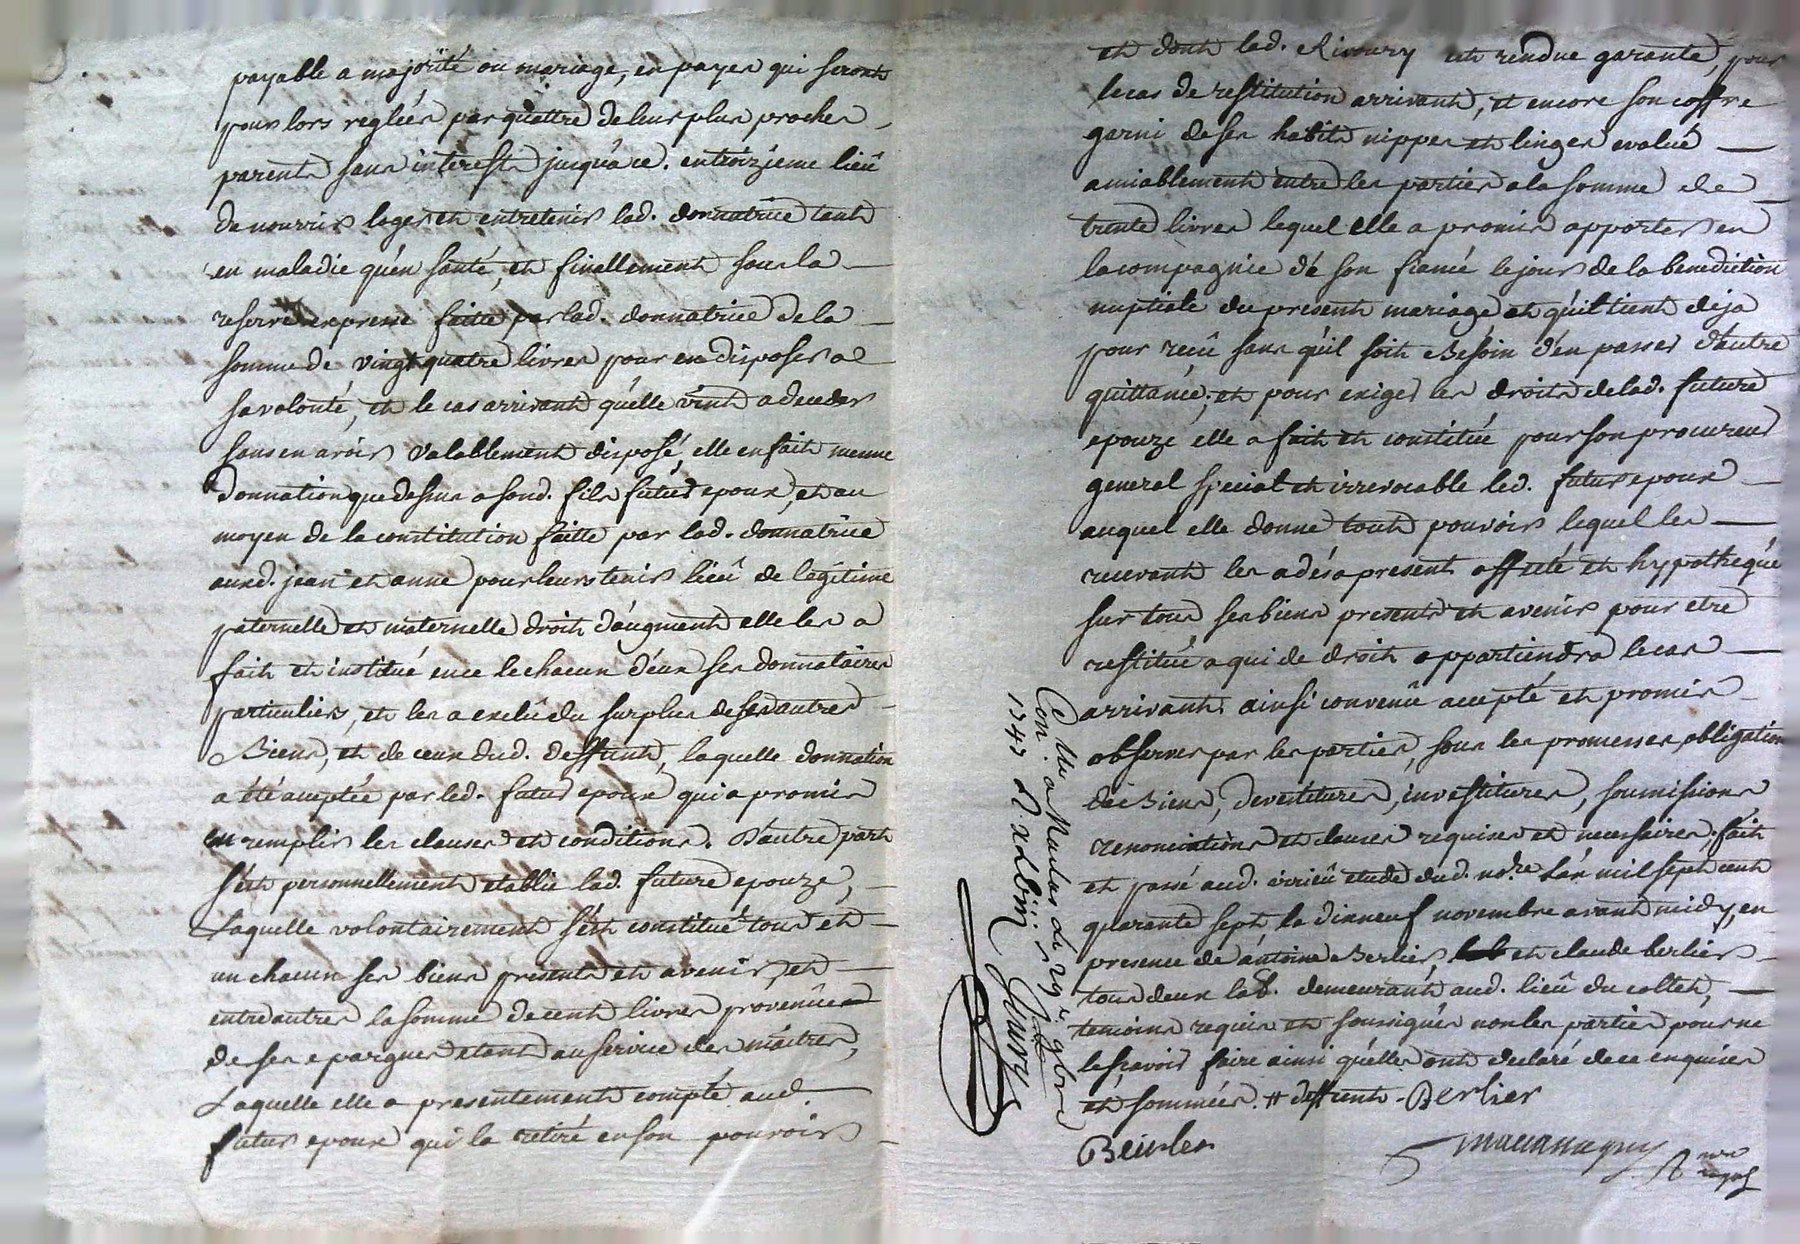 payable a majorité ou mariage, en payes qui seront
pour lors reglées par quattre de leur plus proches
parents sans interest jusqu'a ce. en troizjeme lieû
de nourrir loger et entretenir lad. donnatrice tant
en maladie qu'en santé, et finallement sous la
reserve expresse faitte par lad. donnatrice de la
somme de vingt quatre livres pour en disposer a
sa volonté, et le cas arrivant qu'elle vint a deceder
sans en avoir valablement disposé, elle en fait meme
donnation que dessus a sond. fils futur epoux, et au
moyen de la constitution faitte par lad. donnatrice
auxd. jean et anne pour leurs tenir lieû de legitime
paternelle et maternelle droit d'augment elle les a
fait et institué en ce le chacun d'eux ses donnataires
particuliers, et les a exclû du surplus de ses autres
Biens, et de ceux dud. deffunt, laquelle donnation
a été acceptée par led. futur epoux qui a promis
en remplir les clauses et conditions. D'autre part
s'est personnellement etablie lad. future epouze,
Laquelle volontairement s'est constitué tous et
un chacun ses biens presents et avenir, et
entre autres la somme de cent livres provenûe
de ses epargnes etant au service des maitres,
Laquelle elle a presentement compté aud.
futur epoux qui la retiré en son pouvoir
et dont lad. Rivoiry est rendue garante, pour
le cas de restitution arrivant, et encore son coffre
garni de ses habits nippes et linges evalué
amiablement entre les parties a la somme de
trente livres lequel elle a promis apporter en
la compagnie dé son fiancé le jour de la benediction
nuptiale du present mariage et qu'il tient deja
pour recû sans qu'il soit Bésoin d'en passer d'autre
quittance; et pour exiger les droits de lad. future
epouze elle a fait et constitué pour son procureur
general special et irrevocable led. futur epoux
auquel elle donne tout pouvoir lequel les
recevant les a dés a present affecté et hypothequé
sur tous ses biens presents et avenir pour etre
restitué a qui de droit appartiendra le cas
arrivant. ainsi convenû accepté et promis
observer par les parties, sous les promesses, obligation
de Biens, devestitures, investitures, soumissions
renonciations et clauses requises et necessaires, fait
et passé aud. etude dud. no.re L'an mil sept cent
quarante sept le dixneuf novembre avant midy, en
presence de antoine Berlier, et claude berlier
tous deux lab. demeurant aud. lieû du collet,
temoins requis et soussignés non les parties pour ne
le sçavoir faire ainsi qu'elles ont declaré de ce enquises
et sommées. # deffunt - Berlier
Berlier
no.re
royal
Con.
1747